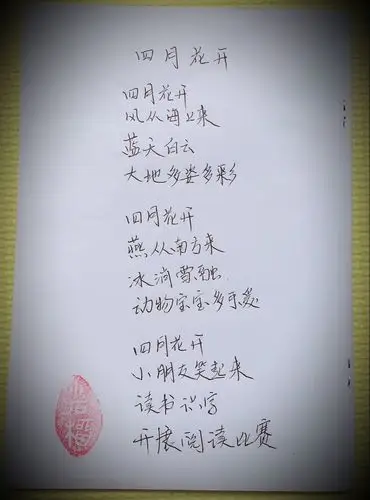 四月花开
四月花开
风从海上来
蓝天白云
大地多姿多彩
四月花开
燕从南方来
冰消雪融
动物宝宝多可爱
四月花开
小朋友笑起来
读书识字
开展阅读比赛